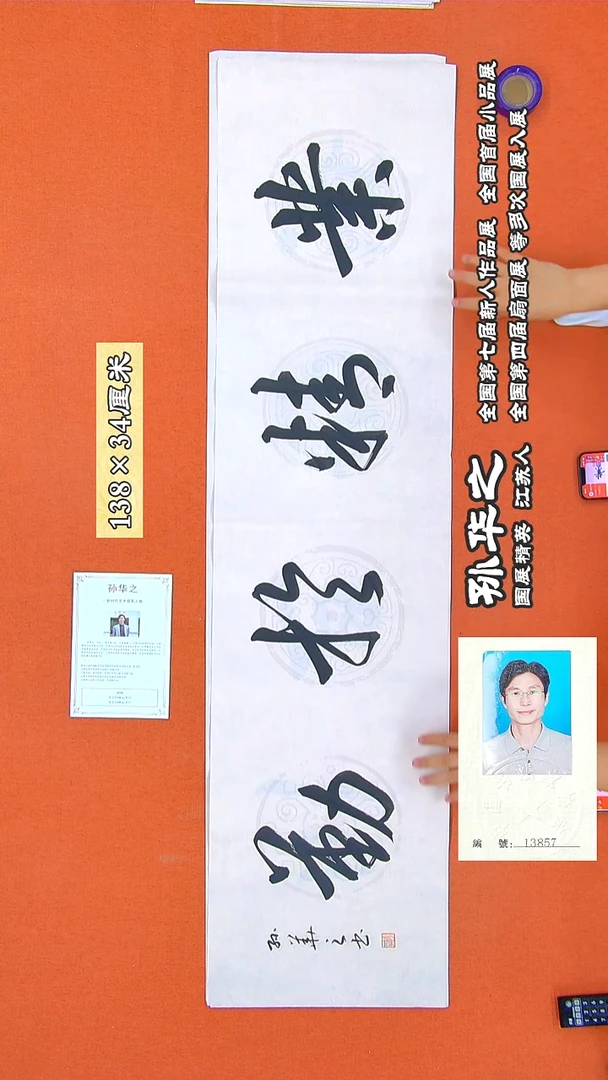 業精於勤
孙華之书
138×34厘米
孙华之
孙华之
國展精英 江苏人
全国第七届新人作品展 全国首届小品展
全国第四届扇面展 等多次国展入展
編 號: 13857